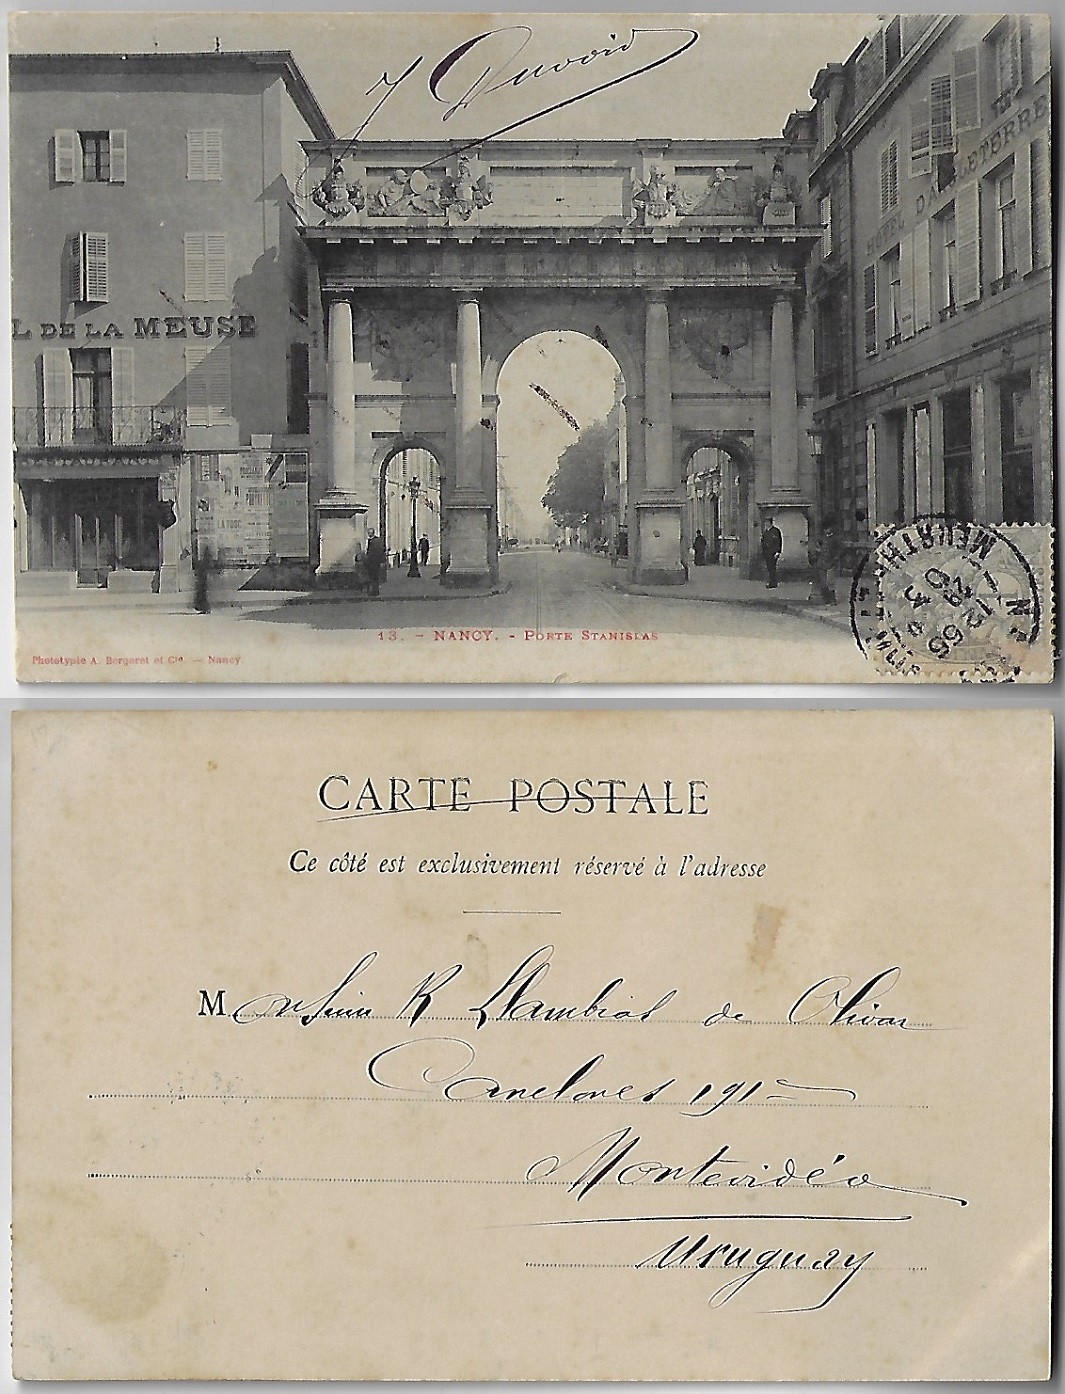 J Duvoid
L DE LA MEUSE
HÔTEL D'ANGLETERRE
LA TOSC
13. - NANCY. - PORTE STANISLAS
Phototypie A. Bergeret et Cie. — Nancy
MEURTHE
CARTE POSTALE
Ce côté est exclusivement réservé à l'adresse
Monsieur R Llambias de Olivar
Canelones 191
Montevidéo
Uruguay